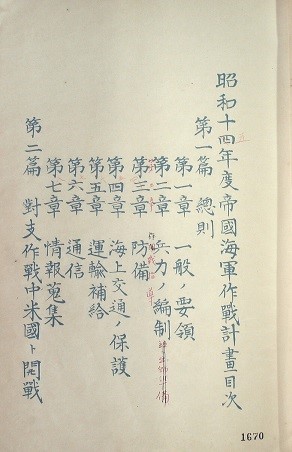 昭和十四年度帝國海軍作戰計畫目次
第一篇　總則
第一章　一般ノ要領
第二章　兵力ノ編制
第三章　防備
第四章　海上交通ノ保護
第五章　運輸補給
第六章　通信
第七章　情報蒐集
第二篇　對支作戰中米國ト開戰
1670